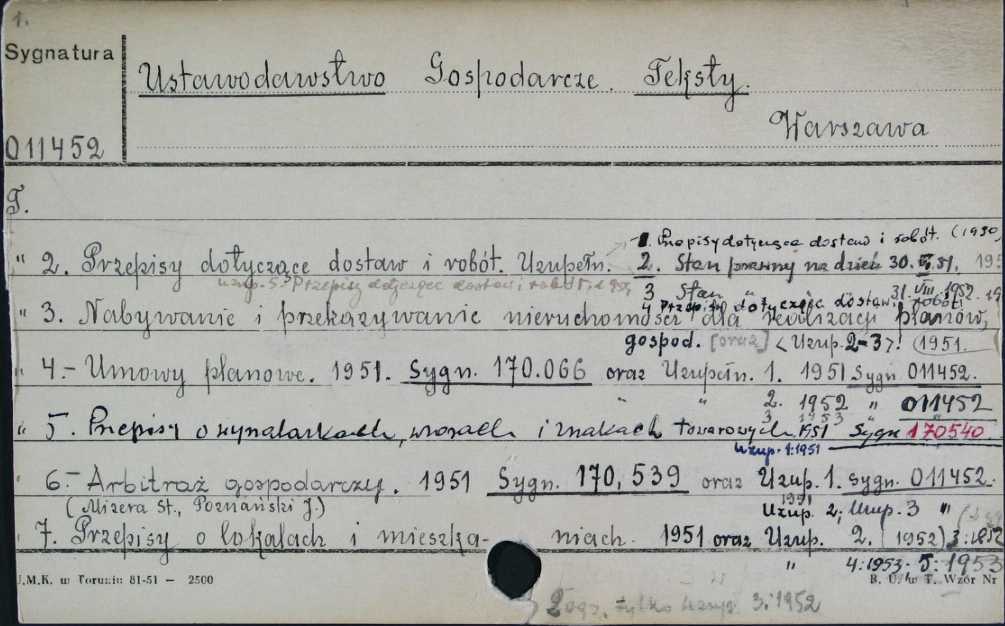 1.
Sygnatura
Ustawodawstwo Gospodarcze. Teksty.
Warszawa
011452
T.
1. Przepisy dotyczące dostaw i robót. (1950
" 2. Przepisy dotyczące dostaw i robót. Uzupełn. 2. Stan prawny na dzień 30. 51. 195
uzup. 5. Przepisy dotyczące dostaw i robót, 195
3 Stan " 31. VIII. 1952. 19
4 Przepisy dotyczące dostaw i robót
" 3. Nabywanie i przekazywanie nieruchomości dla realizacji planów,
gospod. [oraz] <Uzup. 2-3>! (1951.
" 4.- Umowy planowe. 1951. Sygn. 170.066 oraz Uzupełn. 1. 1951 Sygn 011452.
" " 2. 1952 " 011452
3 1953 " "
" 5. Przepisy o wynalazkach, wzorach i znakach towarowych. 1951 Sygn 170540.
Uzup. 1:1951
" 6.- Arbitraż gospodarczy. 1951 Sygn. 170,539 oraz Uzup. 1. Sygn. 011452.
(Mizera St., Poznański J.) 1951
Uzup. 2; Uzup. 3 "
" 7. Przepisy o lokalach i mieszka- niach. 1951 oraz Uzup. 2. (1952) 3:1952
" 4:1953. 5:1953
J.M.K. w Toruniu 81-51 — 2500
B. U. w T. Wzór Nr
2 egz. tylko uzup. 3:1952